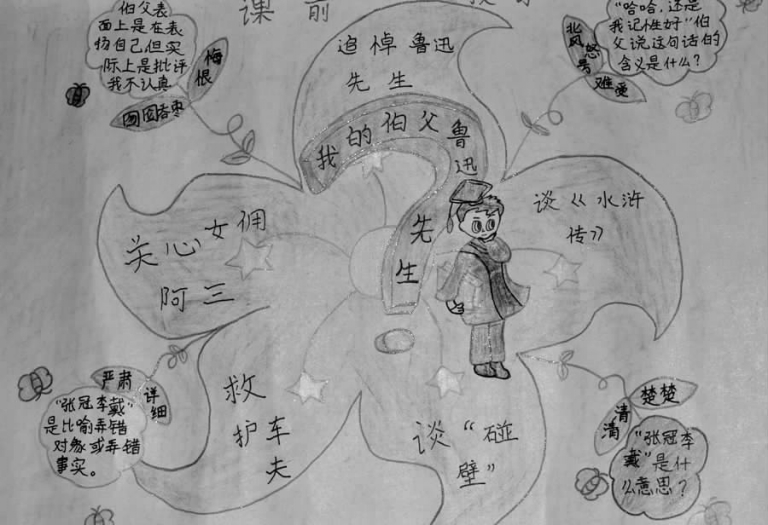 课前
伯父表
面上是在表
扬自己但实
际上是批评
我不认真
悔恨
囫囵吞枣
追悼鲁迅
先生
北风怒号
难受
"哈哈,还是
我记性好"伯
父说这句话的
含义是什么?
我的伯父鲁迅先生
关心女佣
阿三
谈《水浒
传》
严肃
详细
"张冠李戴"
是比喻弄错
对象或弄错
事实。
救
护车
夫
谈"碰
壁"
楚楚
清清
"张冠李
戴"是什
么意思?